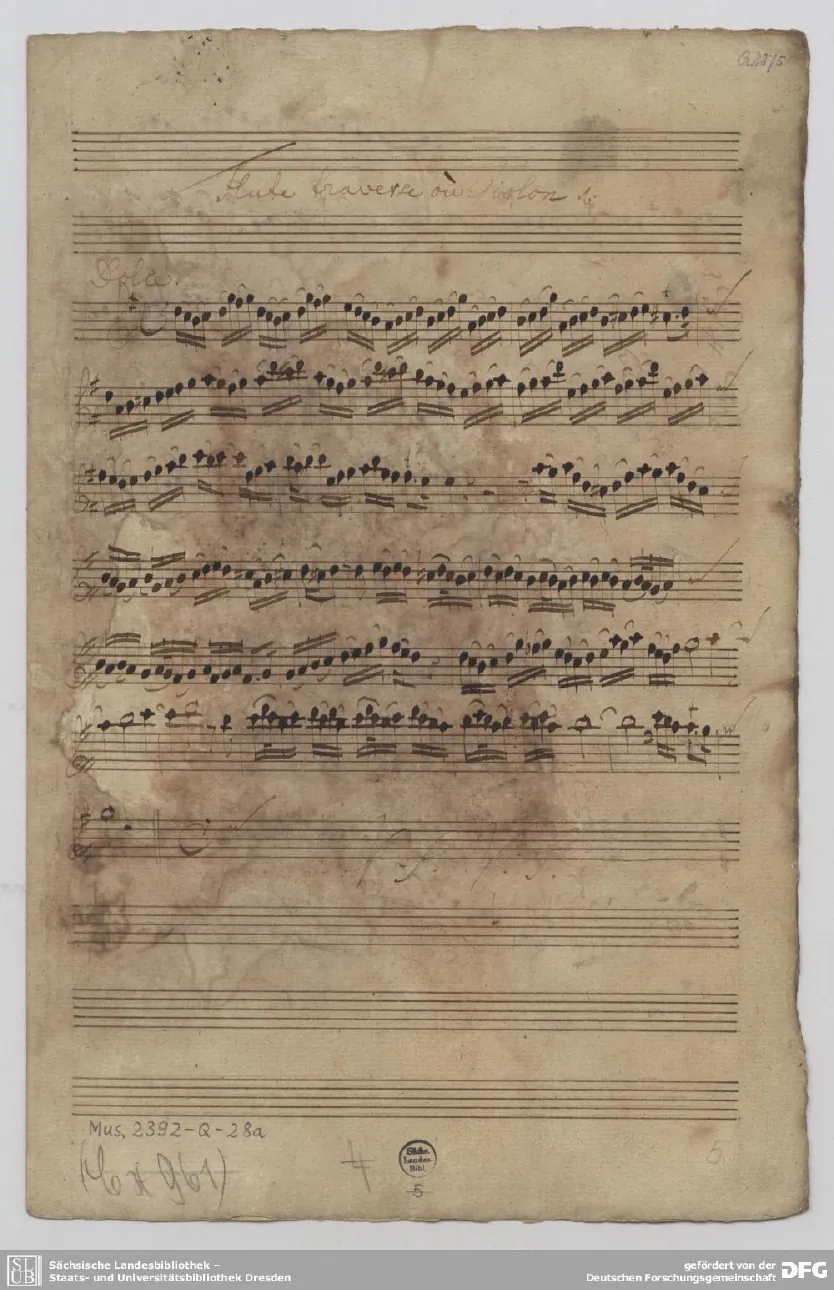 Q 28/5
Flute traverse où Violon 1.
Dolce.
V. S.
Mus. 2392-Q-28a
5
Sächs.
Landes-
Bibl.
5
Sächsische Landesbibliothek –
Staats- und Universitätsbibliothek Dresden
gefördert von der
Deutschen Forschungsgemeinschaft
DFG
SLUB